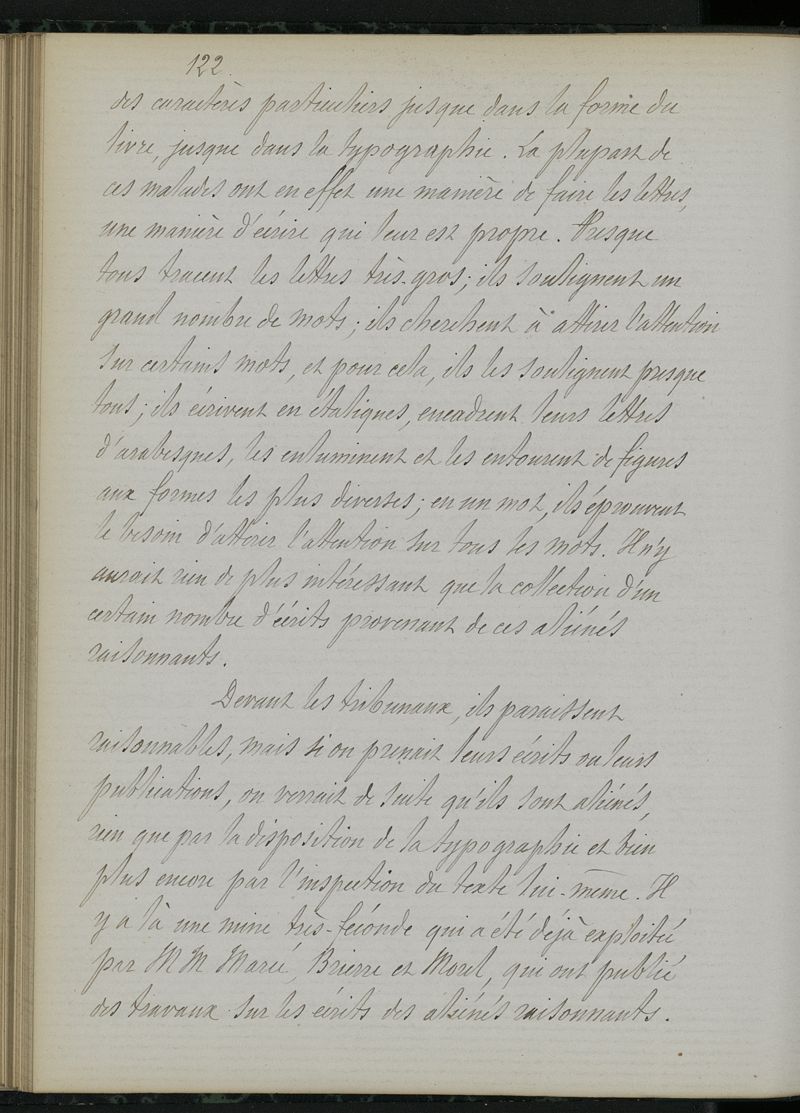 122.
des caractères particuliers jusque dans la forme du
livre, jusque dans la typographie. La plupart de
ces malades ont en effet une manière de faire les lettres,
une manière d'écrire qui leur est propre. Presque
tous tracent les lettres très-gros; ils soulignent un
grand nombre de mots; ils cherchent à attirer l'attention
sur certains mots, et pour cela, ils les soulignent presque
tous; ils écrivent en italiques, encadrent leurs lettres
d'arabesques, les enluminent et les entourent de figures
aux formes les plus diverses; en un mot, ils éprouvent
le besoin d'attirer l'attention sur tous les mots. Il n'y
aurait rien de plus intéressant que la collection d'un
certain nombre d'écrits provenant de ces aliénés
raisonnants.
Devant les tribunaux, ils paraissent
raisonnables, mais si on prenait leurs écrits ou leurs
publications, on verrait de suite qu'ils sont aliénés,
rien que par la disposition de la typographie et bien
plus encore par l'inspection du texte lui-même. Il
y a là une mine très-féconde qui a été déjà exploitée
par MM Marcé, Brierre et Morel, qui ont publié
des travaux sur les écrits des aliénés raisonnants.